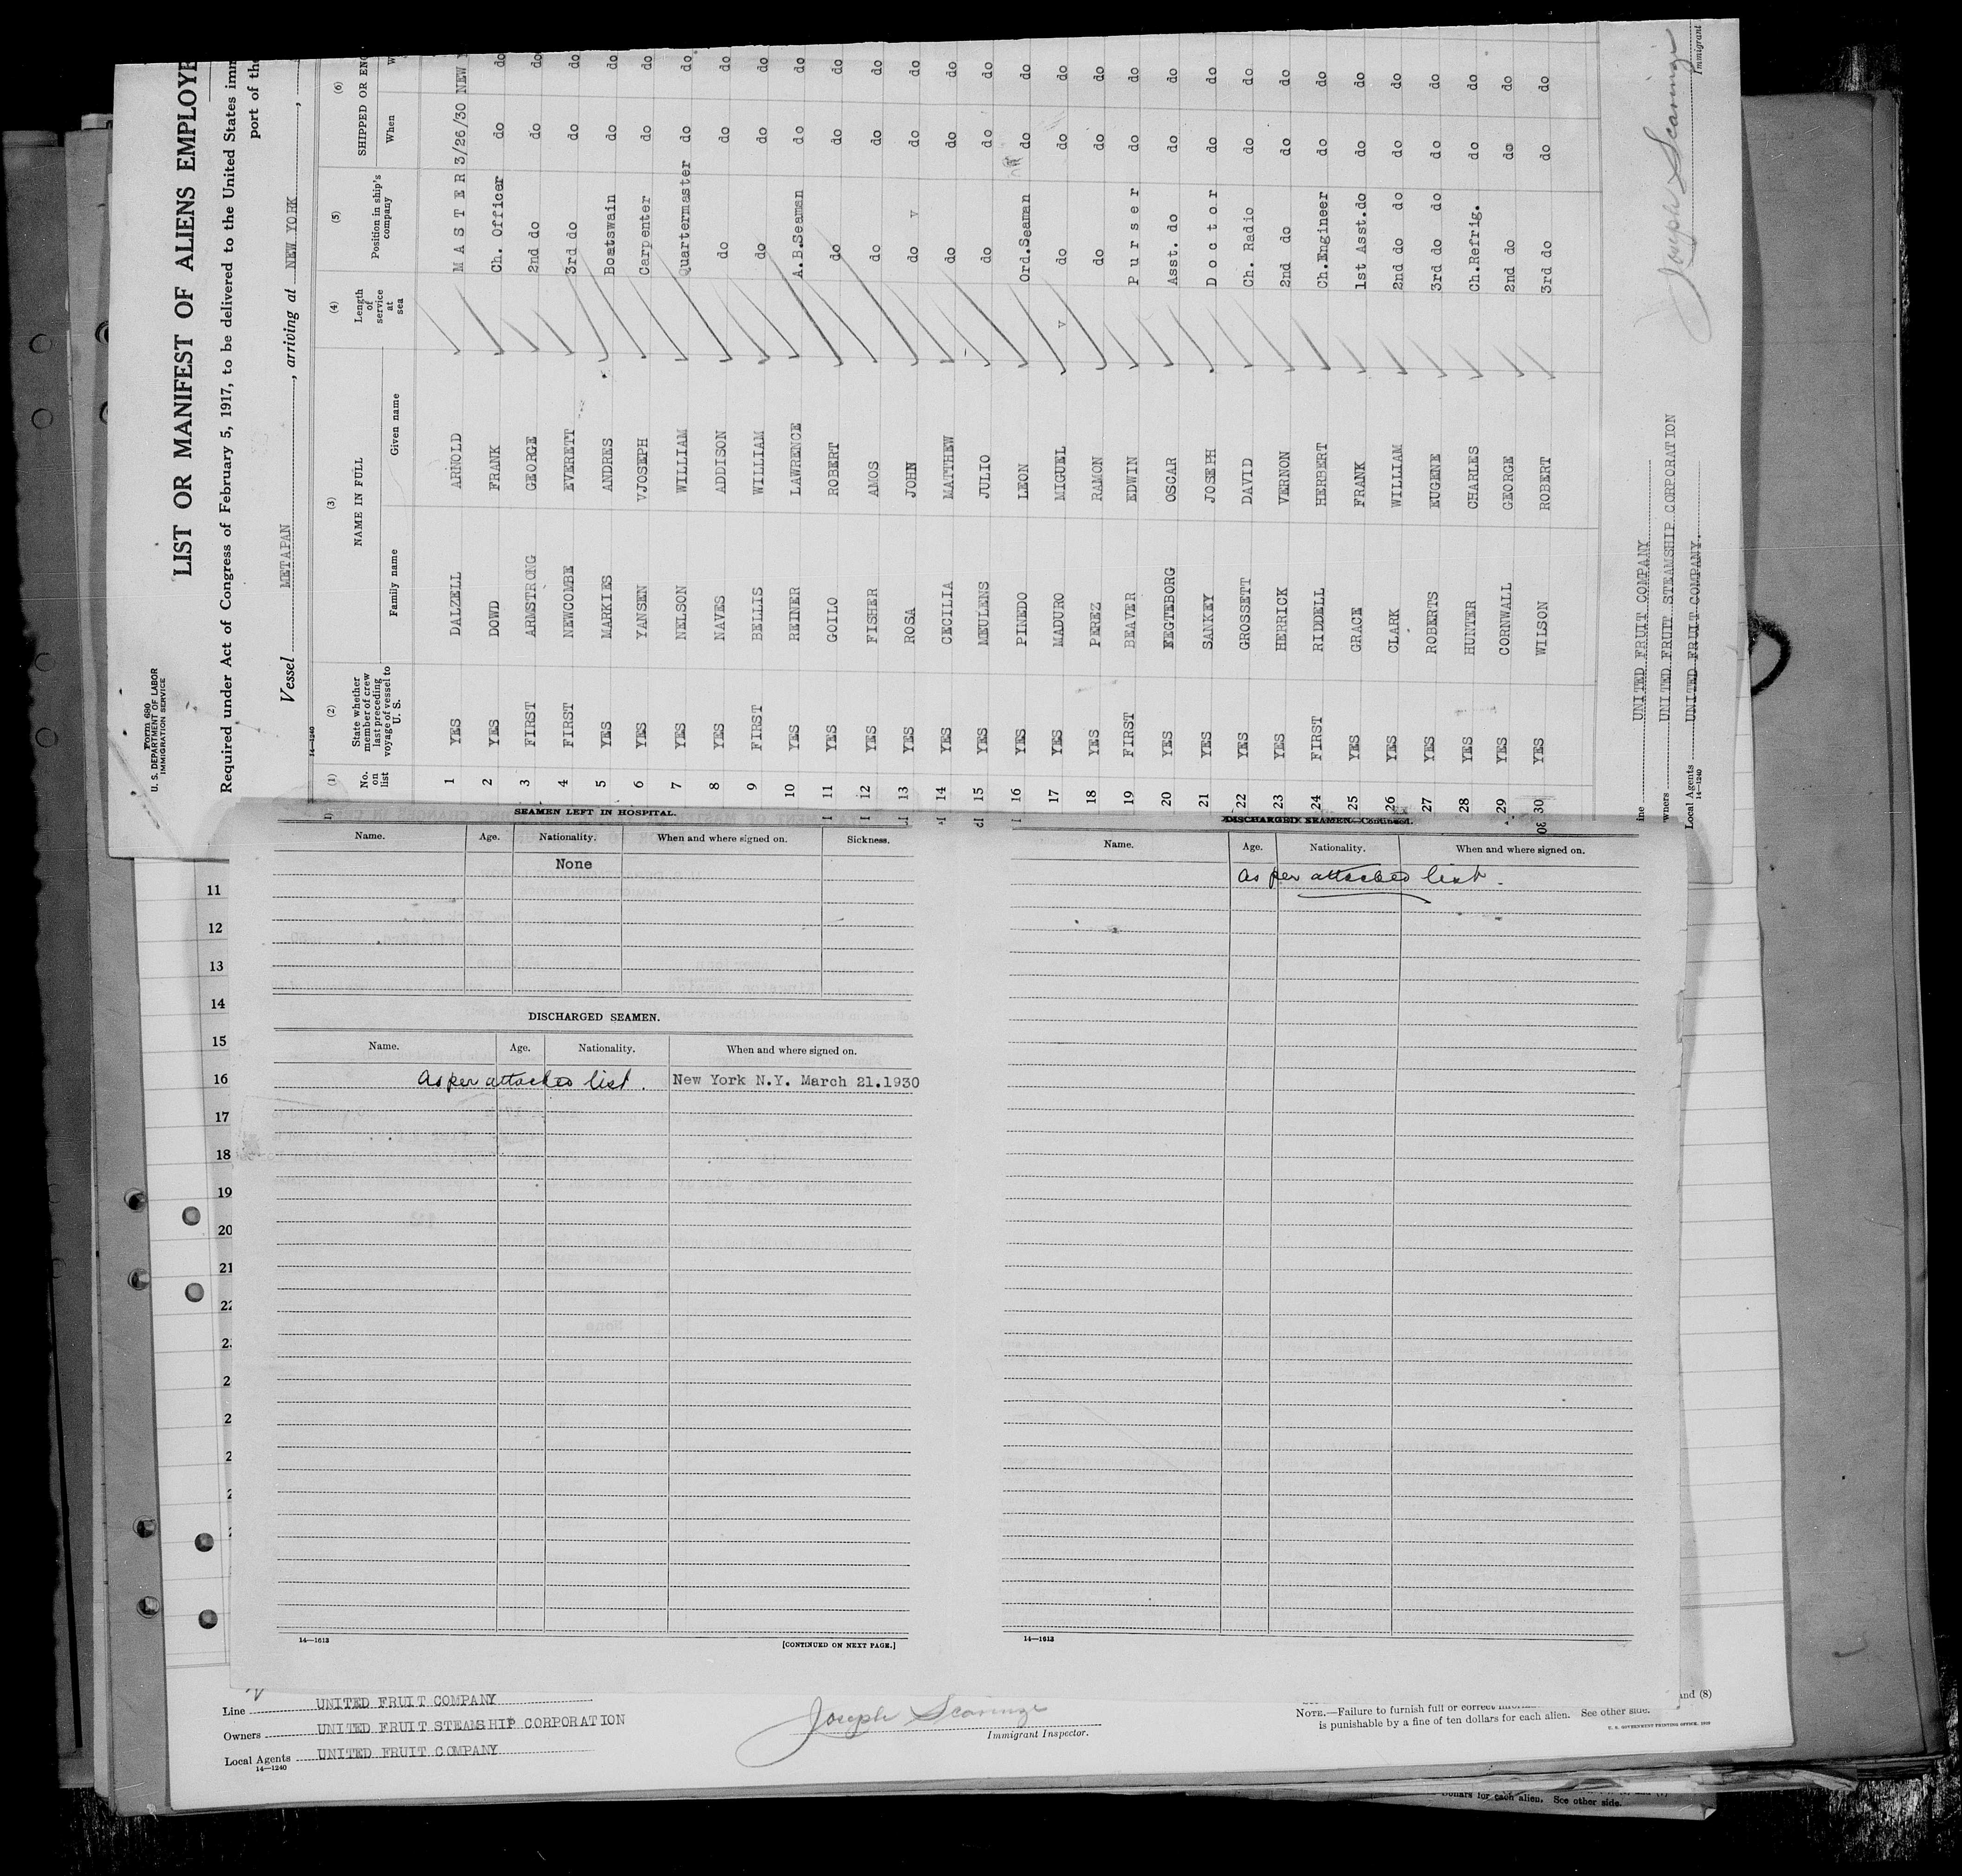 Form 680
U. S. DEPARTMENT OF LABOR
IMMIGRATION SERVICE
LIST OR MANIFEST OF ALIENS EMPLOYE
Required under Act of Congress of February 5, 1917, to be delivered to the United States imm
port of the
Vessel METAPAN, arriving at NEW YORK,
14—1240
(1) (2) (3) (4) (5) (6)
No. on list State whether member of crew last preceding voyage of vessel to U. S. NAME IN FULL Family name Given name Length of service at sea Position in ship's company SHIPPED OR ENG When W
1 YES DALZELL ARNOLD M A S T E R 3/26/30 NEW Y
2 YES DOWD FRANK Ch. Officer do do
3 FIRST ARMSTRONG GEORGE 2nd do do do
4 FIRST NEWCOMBE EVERETT 3rd do do do
5 YES MARKIES ANDRES Boatswain do do
6 YES YANSEN VJOSEPH Carpenter do do
7 YES NELSON WILLIAM Quartermaster do do
8 YES NAVES ADDISON do do do
9 FIRST BELLIS WILLIAM do do do
10 YES REINER LAWRENCE A.B.Seaman do do
11 YES GOILO ROBERT do do do
12 YES FISHER AMOS do do do
13 YES ROSA JOHN do v do do
14 YES CECILIA MATTHEW do do do
15 YES MEULENS JULIO do do do
16 YES PINEDO LEON Ord.Seaman do do
17 YES MADURO MIGUEL v do do do
18 YES PEREZ RAMON do do do
19 FIRST BEAVER EDWIN P u r s e r do do
20 YES FEGTEBORG OSCAR Asst. do do do
21 YES SANKEY JOSEPH D o c t o r do do
22 YES GROSSETT DAVID Ch. Radio do do
23 YES HERRICK VERNON 2nd do do do
24 FIRST RIDDELL HERBERT Ch.Engineer do do
25 YES GRACE FRANK 1st Asst.do do do
26 YES CLARK WILLIAM 2nd do do do do
27 YES ROBERTS EUGENE 3rd do do do do
28 YES HUNTER CHARLES Ch.Refrig. do do
29 YES CORNWALL GEORGE 2nd do do do
30 YES WILSON ROBERT 3rd do do do
ine UNITED FRUIT COMPANY
wners UNITED FRUIT STEAMSHIP CORPORATION
Local Agents UNITED FRUIT COMPANY.
14—1240
Joseph Scaringi
Immigrant
SEAMEN LEFT IN HOSPITAL.
Name. Age. Nationality. When and where signed on. Sickness.
None
DISCHARGED SEAMEN.
Name. Age. Nationality. When and where signed on.
As per attached list. New York N.Y. March 21.1930
14—1613 [CONTINUED ON NEXT PAGE.]
DISCHARGED SEAMEN—Continued.
Name. Age. Nationality. When and where signed on.
as per attached list.
14—1613
11
12
13
14
15
16
17
18
19
20
21
22
Line UNITED FRUIT COMPANY
Owners UNITED FRUIT STEAMSHIP CORPORATION
Local Agents UNITED FRUIT COMPANY
14—1240
Joseph Scaringi
Immigrant Inspector.
and (8)
NOTE.—Failure to furnish full or correct
is punishable by a fine of ten dollars for each alien. See other side.
U. S. GOVERNMENT PRINTING OFFICE
Dollars for each alien. See other side.